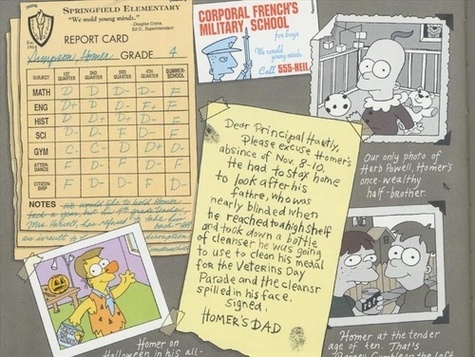 SPRINGFIELD ELEMENTARY
"We mold young minds."
REPORT CARD
Simpson, Homer GRADE 4
SUBJECT 1ST QUARTER 2ND QUARTER 3RD QUARTER 4TH QUARTER SUMMER-SCHOOL
MATH D D D- D F
ENG D+ D D- F+ F
HIST D D+ D D- F
SCI D- D- F D- F
GYM C C- D D+ D
ATTEN-DANCE F D D- D- F
CITIZEN-SHIP F D- F D- F
NOTES We would like to hold Homer
back a year, but his 4th grade teacher,
CORPORAL FRENCH'S
MILITARY SCHOOL
for boys
We mould
young minds.
Call 555-HEIL
Dear Principal Hartly,
Please excuse Homer's
absince of Nov. 8-10.
He had to stay home
to look after his
fathre, who was
nearly blinded when
he reached to a high shelf
and took down a bottle
of cleanser he was going
to use to clean his medal
for the Veterins Day
Parade and the cleansr
spilled in his face.
Signed,
HOMER'S DAD
Our only photo of
Herb Powell, Homer's
once wealthy
half-brother.
Homer on
Halloween in his all-
Homer at the tender
age of ten. That's
Barney Gumble on the left